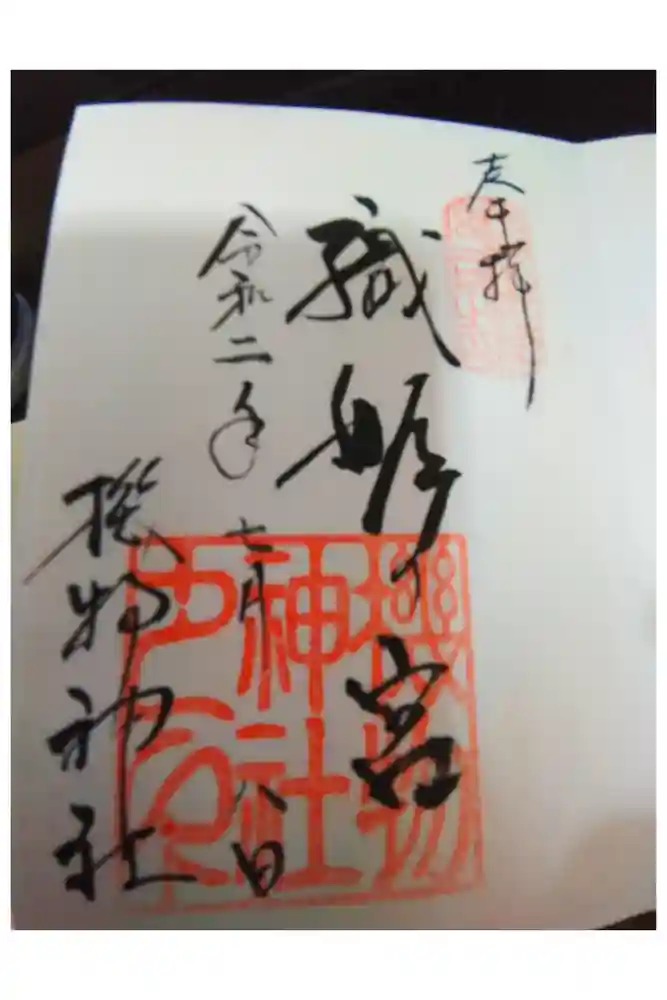 奉拝
織姫の宮
令和二年七月八日
機物神社
機物
神社